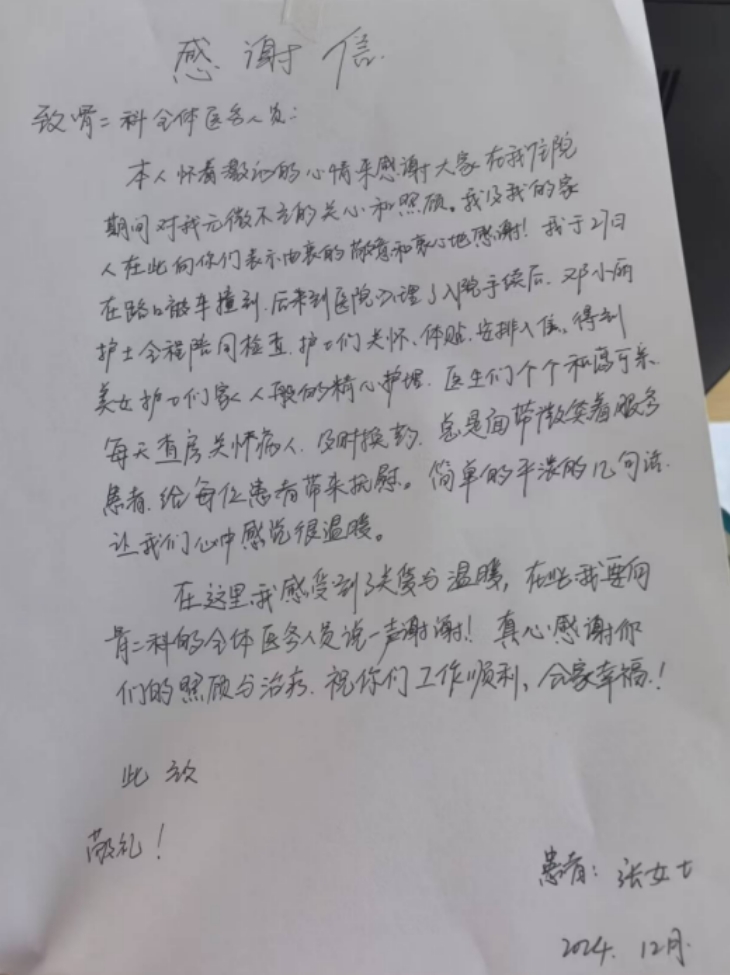 感谢信
致骨二科全体医务人员:
本人怀着激动的心情来感谢大家在我住院
期间对我无微不至的关心和照顾。我及我的家
人在此向你们表示由衷的敬意和衷心地感谢！我于27日
在路口被车撞到.后来到医院办理了入院手续后.邓小丽
护士全程陪同检查.护士们关怀、体贴.安排入住。得到
美女护士们家人般的精心护理.医生们个个和蔼可亲.
每天查房关怀病人.及时换药.总是面带微笑着服务
患者.给每位患者带来抚慰。简单的平淡的几句话.
让我们心中感觉很温暖。
在这里我感受到了关爱与温暖，在此我要向
骨二科的全体医务人员说一声谢谢！真心感谢你
们的照顾与治疗.祝你们工作顺利，合家幸福！
此致
敬礼！
患者：张女士
2024.12月.